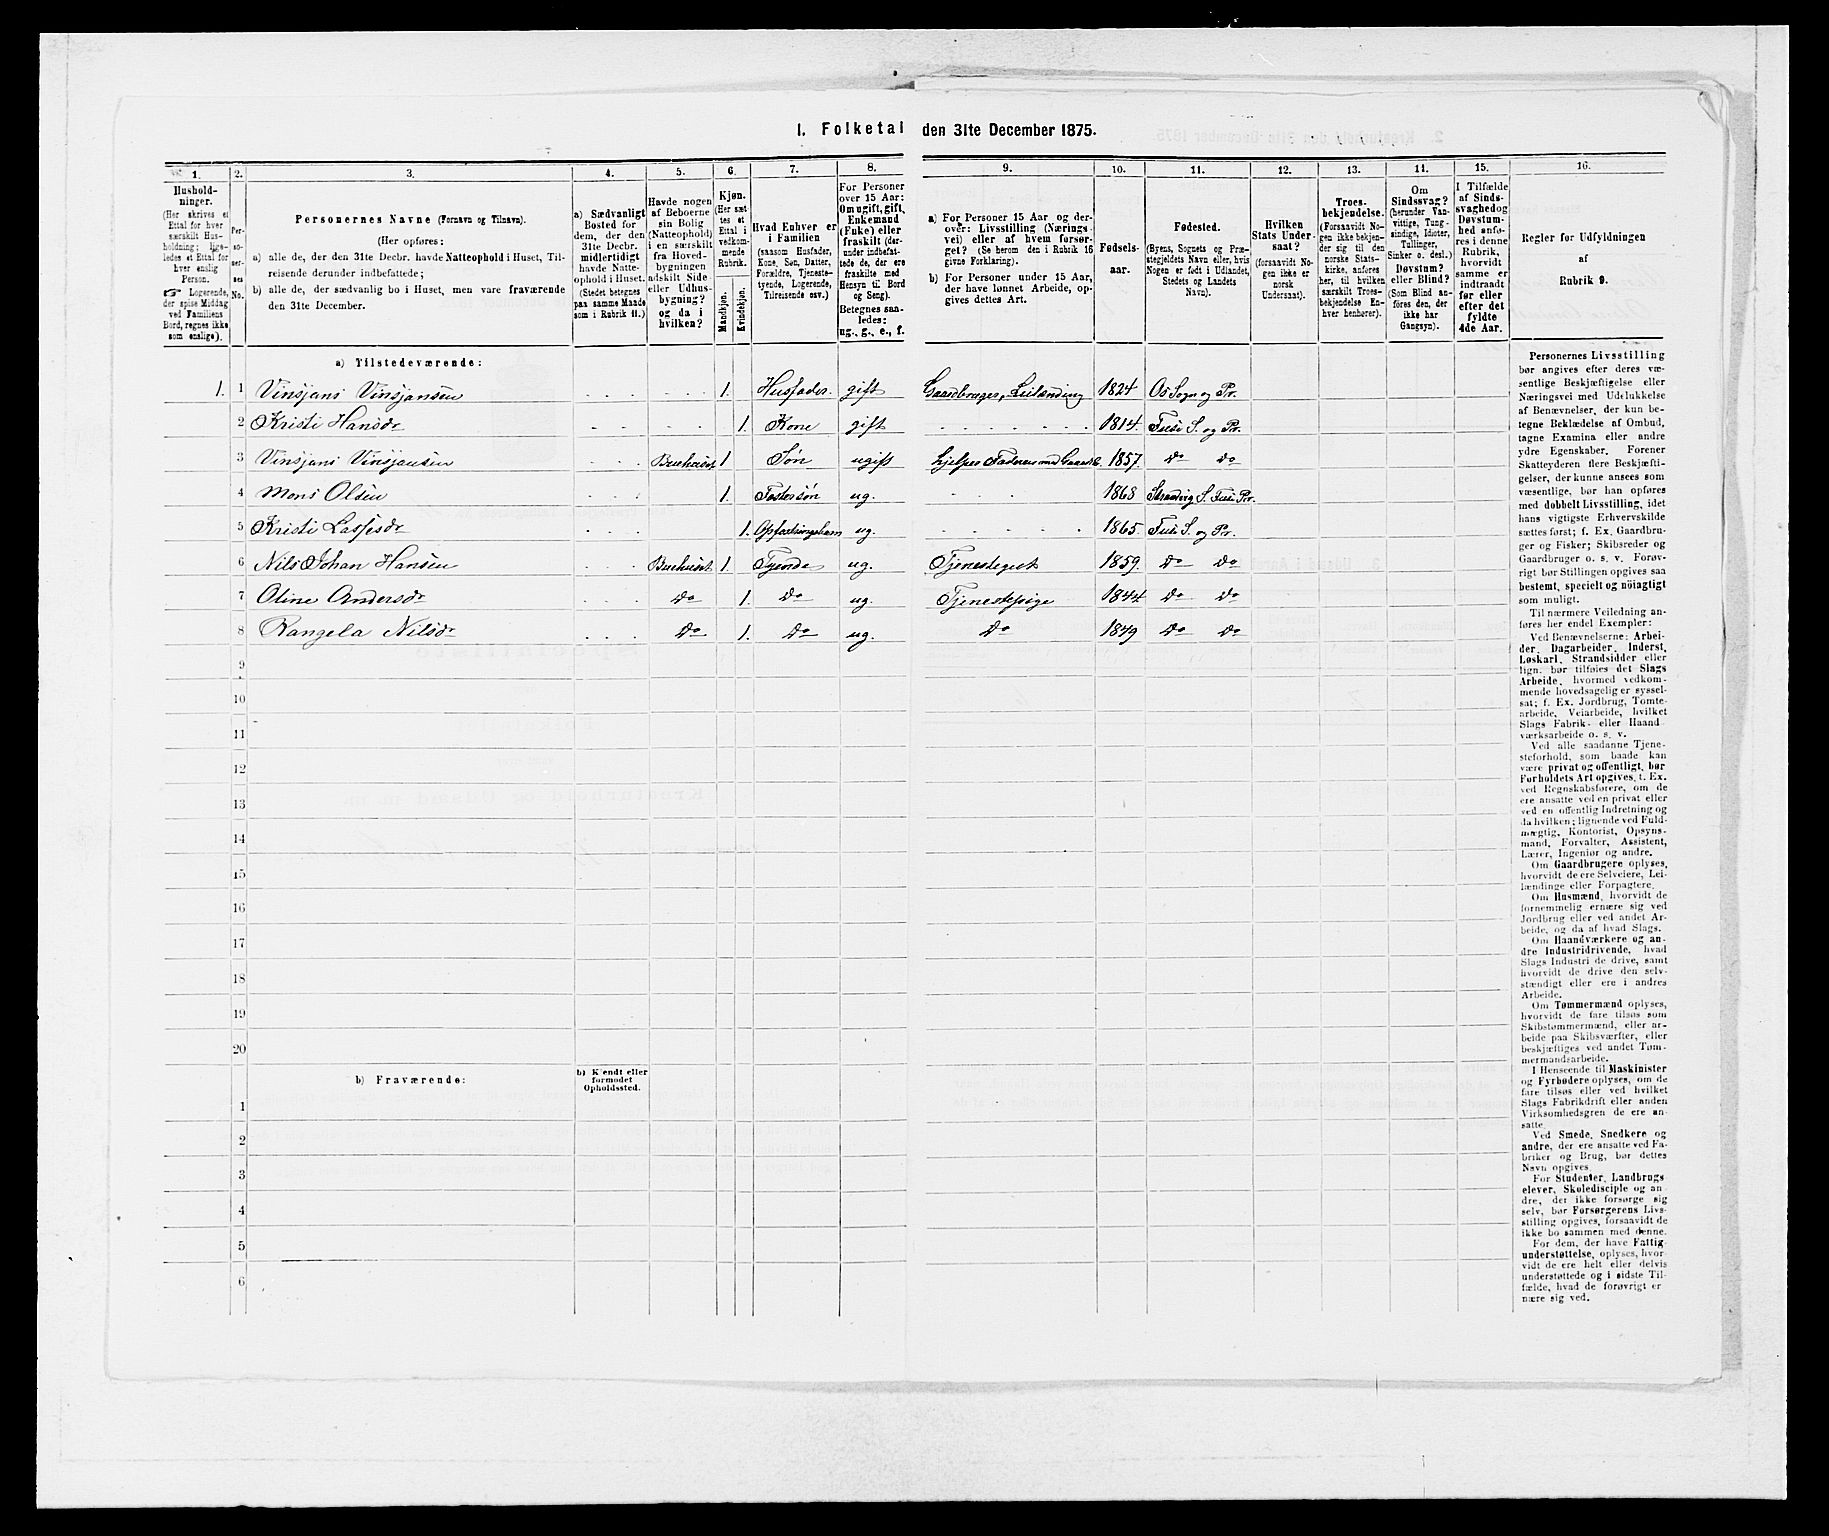 1. Folketal den 31te December 1875.
1. 2. 3. 4. 5. 6. 7. 8. 9. 10. 11. 12. 13. 14. 15. 16.
Hushold-
ninger.
(Her skrives et
Ettal for hver
særskilt Hus-
holdning; lige-
ledes et Ettal for
hver enslig
Person.
☞ Logerende,
der spise Middag
ved Familiens
Bord, regnes ikke
som enslige).
Per-
so-
ner-
nes
No.
Personernes Navne (Fornavn og Tilnavn).
(Her opføres:
a) alle de, der den 31te Decbr. havde Natteophold i Huset, Til-
reisende derunder indbefattede;
b) alle de, der sædvanlig bo i Huset, men vare fraværende
den 31te December.
a) Sædvanligt
Bosted for
dem, der den
31te Decbr.
midlertidigt
havde Natte-
ophold i Huset.
(Stedet betegnes
paa samme Maade
som i Rubrik 11.)
Havde nogen
af Beboerne
sin Bolig
(Natteophold)
i en særskilt
fra Hoved-
bygningen
adskilt Side-
eller Udhus-
bygning?
og da i
hvilken?
Kjøn.
(Her sæt-
tes et
Ettal i
vedkom-
mende
Rubrik.
Mandkjøn.
Kvindekjøn.
Hvad Enhver er
i Familien
(saasom Husfader,
Kone, Søn, Datter,
Forældre, Tjeneste-
tyende, Logerende,
Tilreisende osv.)
For Personer
over 15 Aar:
Om ugift, gift,
Enkemand
(Enke) eller
fraskilt (der-
under indbefat-
tede de, der ere
fraskilte med
Hensyn til Bord
og Seng).
Betegnes saa-
ledes:
ug., g., e., f.
a) For Personer 15 Aar og der-
over: Livsstilling (Nærings-
vei) eller af hvem forsør-
get? (Se herom den i Rubrik 16
givne Forklaring).
b) For Personer under 15 Aar,
der have lønnet Arbeide, op-
gives dettes Art.
Fødsels-
aar.
Fødested.
(Byens, Sognets og Præ-
stegjeldets Navn eller, hvis
Nogen er født i Udlandet,
Stedets og Landets
Navn).
Hvilken
Stats Under-
saat?
(forsaavidt No-
gen ikke er
norsk
Undersaat).
Troes-
bekjendelse.
(Forsaavidt No-
gen ikke bekjen-
der sig til den
norske Stats-
kirke, anføres
her, til hvilken
særskilt Troes-
bekjendelse En-
hver henhører).
Om
Sindssvag?
(herunder Van-
vittige, Tung-
sindige, Idioter,
Tullinger,
Sinker o. desl.)
Døvstum?
eller Blind?
(Som Blind an-
føres den, der
ikke har
Gangsyn).
I Tilfælde
af Sinds-
svaghed og
Døvstum-
hed anfø-
res i denne
Rubrik,
hvorvidt
samme er
indtraadt
før eller
efter det
fyldte
4de Aar.
Regler for Udfyldningen
af
Rubrik 9.
a) Tilstedeværende:
1. 1 Vinsjans Vinsjansen 1. Husfader gift Gaardbruger, Leilænding 1824 Os Sogn og Pr.
2 Kristi Hansdr 1. Kone gift 1814. Fuse S. og Pr.
3 Vinsjans Vinsjansen 1 Søn ugift 1857. Do Do
4 Mons Olsen 1. Fostersøn ug. 1868 Strandvig S. Fuse Pr.
5 Kristi Lassesdr 1. ug. 1865. Fuse S. og Pr.
6 Nils Johan Hansen 1. Tyende ug. Tjenestegut 1859. Do Do
7 Oline Andersdr Do 1. Do ug. Tjenestepige 1844. Do Do
8 Rangela Nilsdr Do 1. Do ug. Do 1849 Do Do
9
10
11
12
13
14
15
16
17
18
19
20
b) Fraværende:
b) Kjendt eller
formodet
Opholdssted.
1
2
3
4
5
6
Personernes Livsstilling
bør angives efter deres væ-
sentlige Beskjæftigelse eller
Næringsvei med Udelukkelse
af Benævnelser, der kun be-
tegne Beklædelse af Ombud,
tagne Examina eller andre
ydre Egenskaber. Forener
Skatteyderen flere Beskjæfti-
gelser, der kunne ansees som
væsentlige, bør han opføres
med dobbelt Livsstilling, idet
hans vigtigste Erhvervskilde
sættes først; f. Ex. Gaardbru-
ger og Fisker; Skibsreder og
Gaardbruger o. s. v. Forøv-
rigt bør Stillingen opgives saa
bestemt, specielt og nøiagtigt
som muligt.
Til nærmere Veiledning an-
føres her endel Exempler:
Ved Benævnelserne: Arbei-
der, Dagarbeider, Inderst,
Løskarl, Strandsidder eller
lign. bør tilføies det Slags
Arbeide, hvormed vedkom-
mende hovedsagelig er syssel-
sat; f. Ex. Jordbrug, Tomte-
arbeide, Veiarbeide, hvilket
Slags Fabrik- eller Haand-
værksarbeide o. s. v.
Ved alle saadanne Tjene-
steforhold, som baade kan
være privat og offentligt, bør
Forholdets Art opgives, t. Ex.
ved Regnskabsførere, om de
ere ansatte ved en privat eller
ved en offentlig Indretning og
da hvilken; lignende ved Fuld-
mægtig, Kontorist, Opsyns-
mand, Forvalter, Assistent,
Lærer, Ingeniør og andre.
Om Gaardbrugere oplyses,
hvorvidt de ere Selveiere, Lei-
lændinge eller Forpagtere.
Om Husmænd, hvorvidt de
fornemmelig ernære sig ved
Jordbrug eller ved andet Ar-
beide, og da af hvad Slags.
Om Haandværkere og an-
dre Industridrivende, hvad
Slags Industri de drive, samt
hvorvidt de drive den selv-
stændigt eller ere i andres
Arbeide.
Om Tømmermænd oplyses,
hvorvidt de fare tilsøs som
Skibstømmermænd, eller ar-
beide paa Skibsværfter, eller
beskjæftiges ved andet Tøm-
mermandsarbeide.
I Henseende til Maskinister
og Fyrbødere oplyses, om de
fare tilsøs eller ved hvilket
Slags Fabrikdrift eller anden
Virksomhedsgren de ere an-
satte.
Ved Smede, Snedkere og
andre, der ere ansatte ved Fa-
briker og Brug, bør dettes
Navn opgives.
For Studenter, Landbrugs-
elever, Skoledisciple og an-
dre, der ikke forsørge sig
selv, bør Forsørgerens Livs-
stilling opgives, forsaavidt de
ikke bo sammen med denne.
For dem, der have Fattig-
understøttelse, oplyses, hvor-
vidt de ere helt eller delvis
understøttede og i sidste Til-
fælde, hvad de forøvrigt er-
nære sig ved.